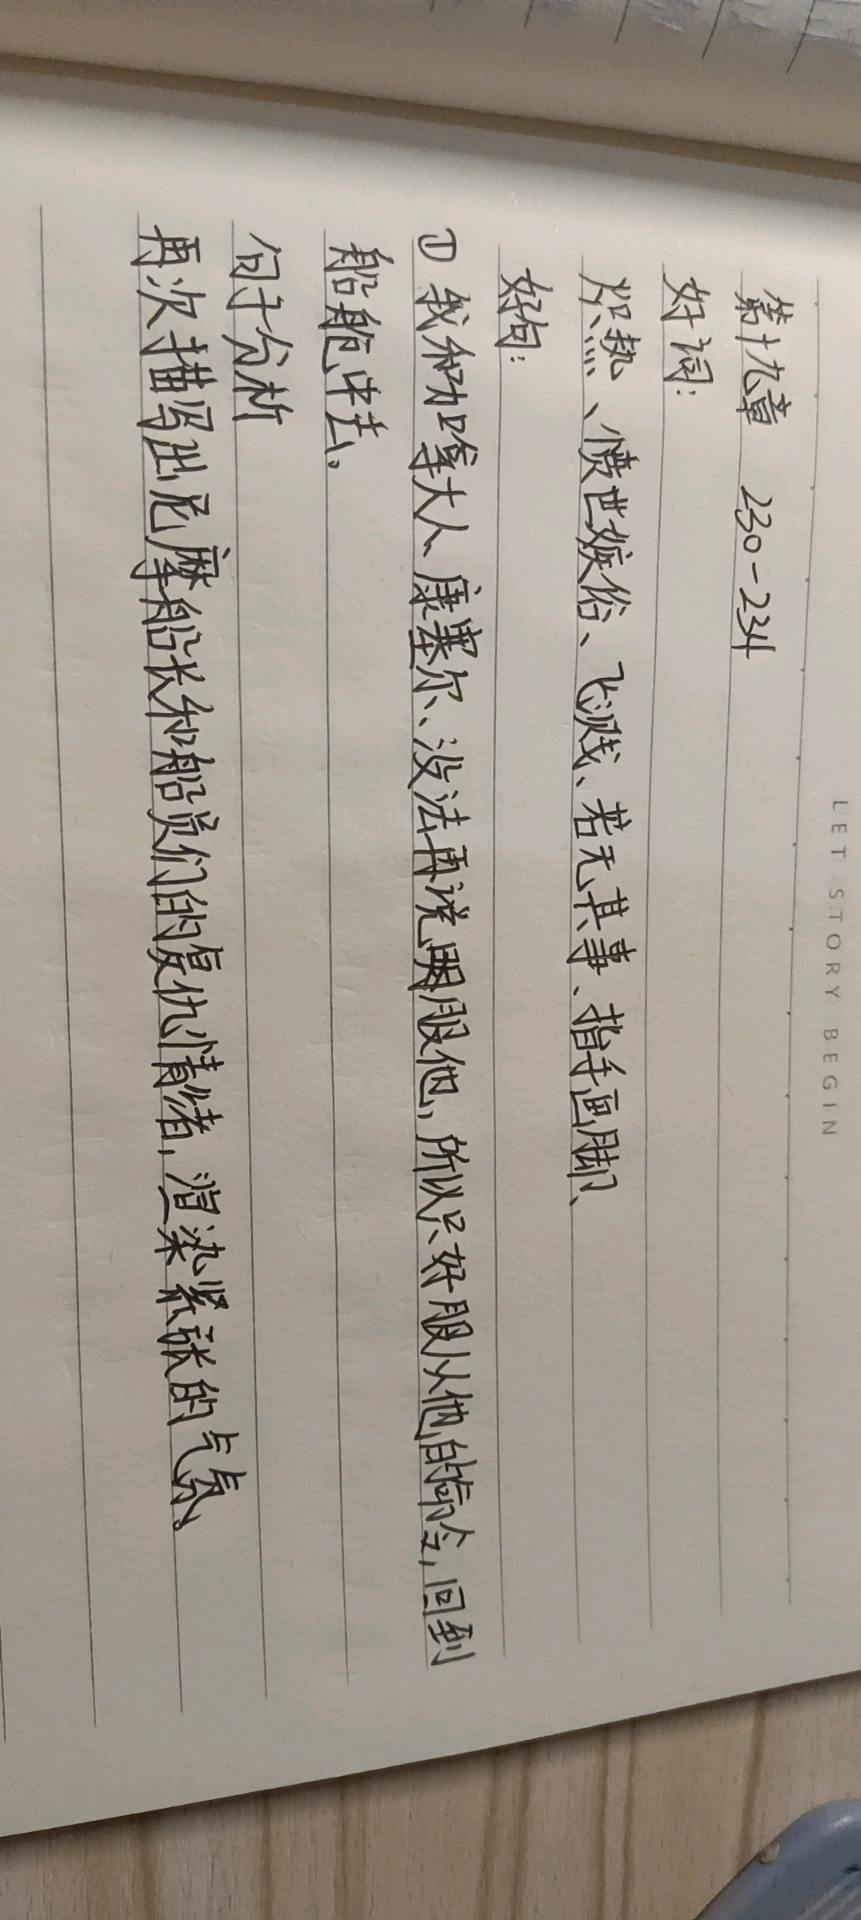 LET STORY BEGIN
第十九章 230-234
好词:
炽热、愤世嫉俗、飞溅、若无其事、指手画脚、
好句:
① 我和加拿大人、康塞尔、没法再说服他,所以只好服从他的命令,回到
船舱中去。
句子分析
再次描写出尼摩船长和船员们的复仇情绪,渲染紧张的气氛、